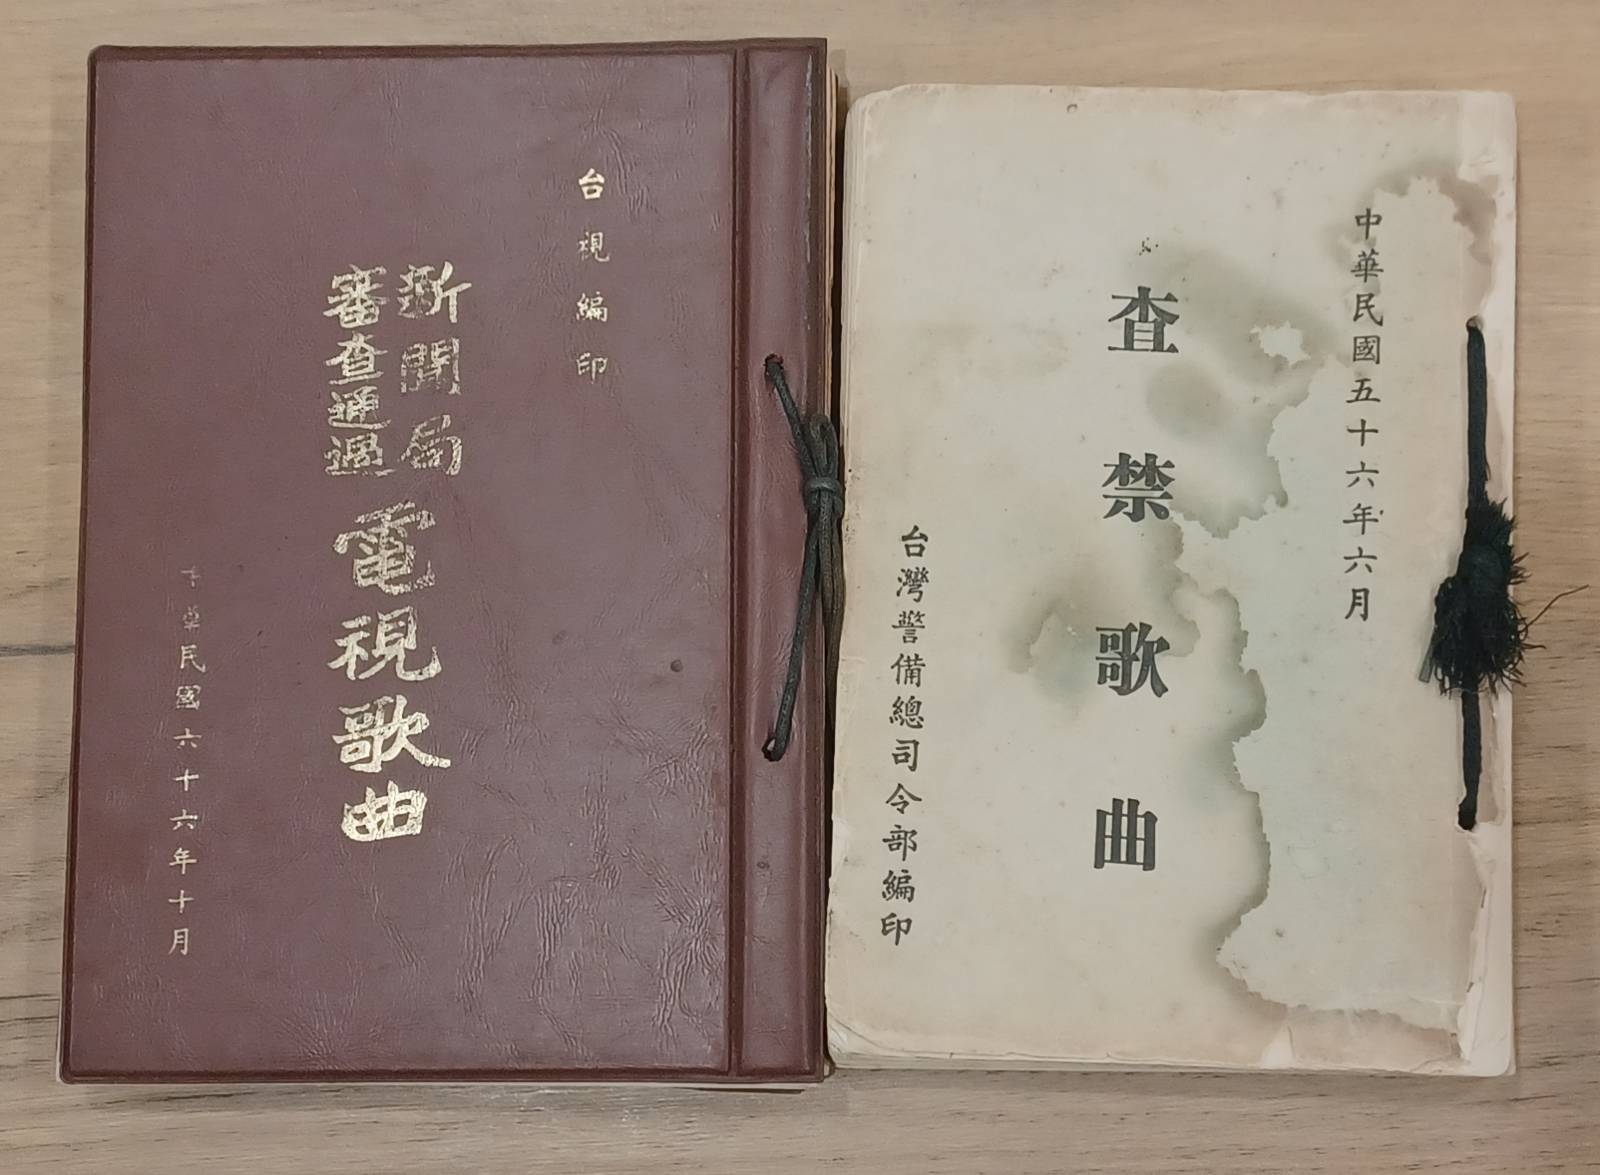 台視編印
新聞局
審查通過
電視歌曲
中華民國六十六年十月
中華民國五十六年六月
查禁歌曲
台灣警備總司令部編印